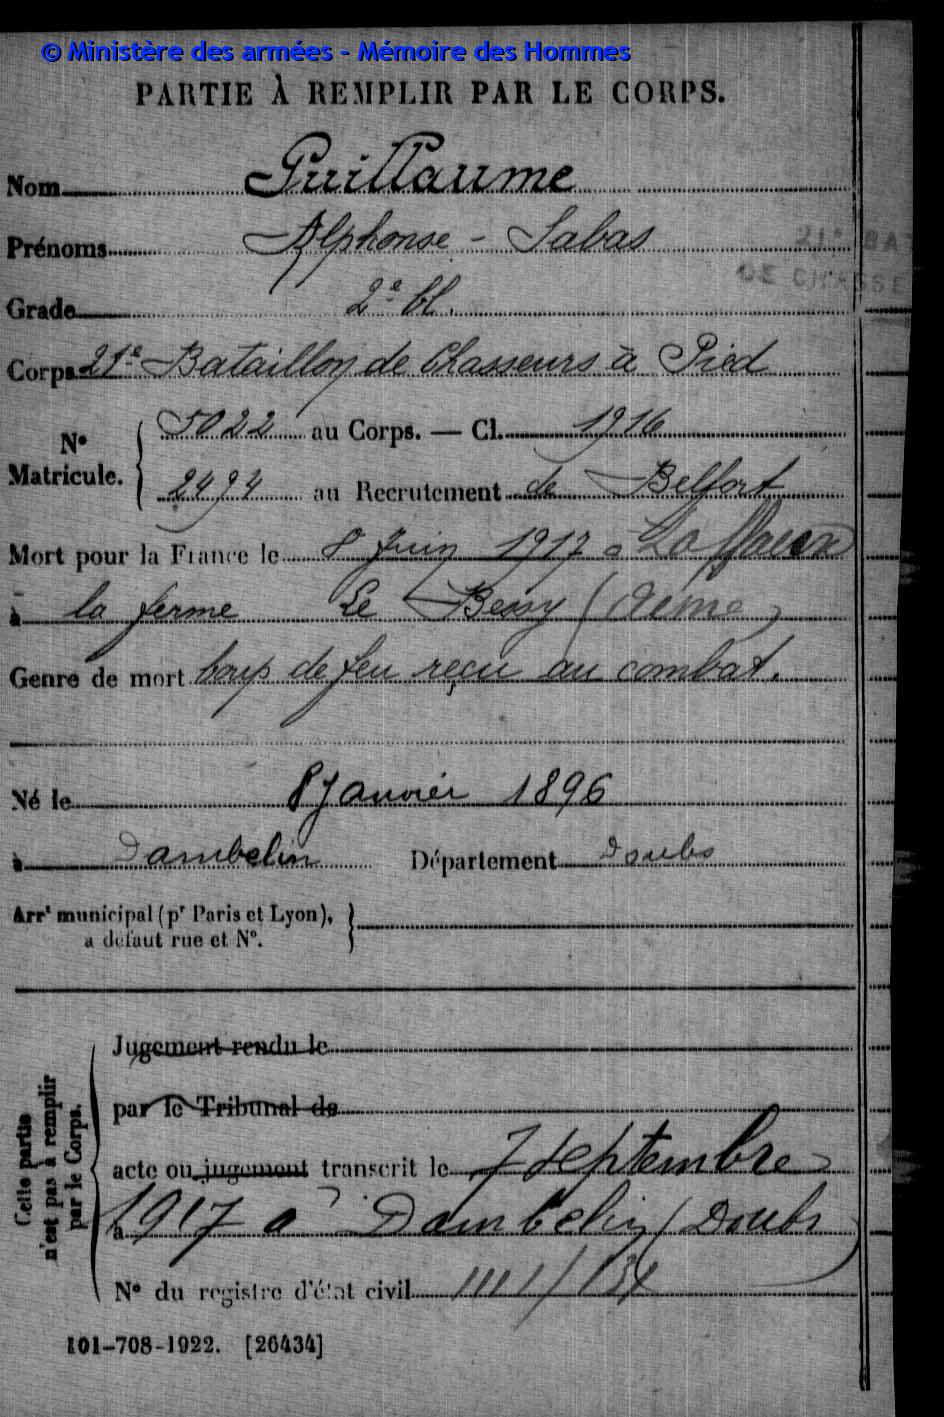 © Ministère des armées - Mémoire des Hommes
PARTIE À REMPLIR PAR LE CORPS.
Nom Guillaume
Prénoms Alphonse - Sabas
21e BAT
DE CHASSE
Grade 2e Cl.
Corps 21e Bataillon de Chasseurs à Pied
N° Matricule. 5022 au Corps. — Cl. 1916
2494 au Recrutement de Belfort
Mort pour la France le 8 Juin 1917 à Laffaux
à la ferme Le Bessy (Aisne)
Genre de mort Coup de feu reçu au combat.
Né le 8 Janvier 1896
à Dambelin Département Doubs
Arrt municipal (pr Paris et Lyon),
à défaut rue et N°.
Cette partie
n'est pas à remplir
par le Corps.
Jugement rendu le
par le Tribunal de
acte ou jugement transcrit le 7 septembre
à 1917 à Dambelin (Doubs)
N° du registre d'état civil
101-708-1922. [26434]